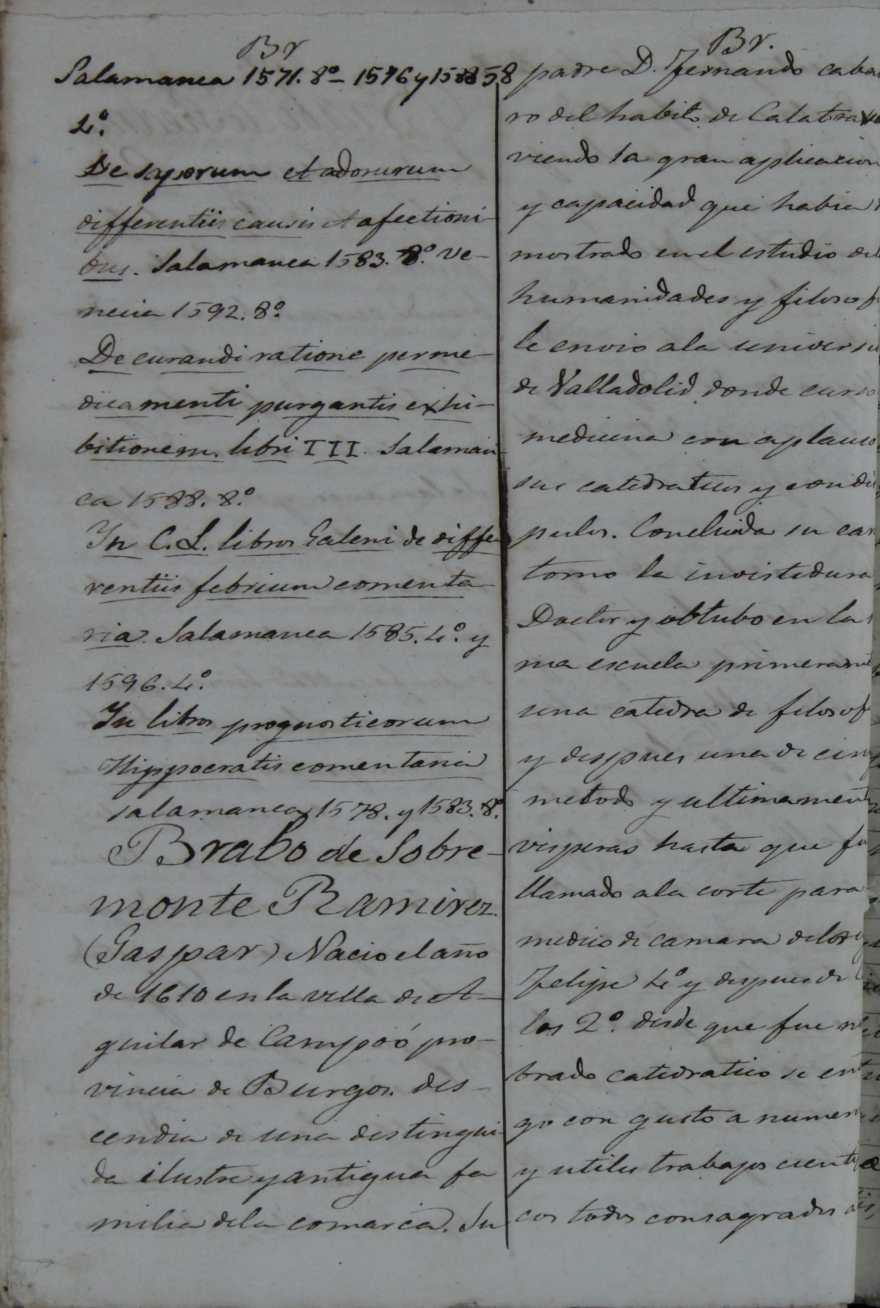 Br
Salamanca 1571. 8º 1576 y 1588 58
4º.
De saporum et adorurum
differentiis causis et afectioni-
bus. Salamanca 1583. 8º. Ve-
necia 1592. 8º
De curandi ratione per me-
dicamenti purgantis exhi-
bitionem. libri III. Salaman-
ca 1588. 8º
In C. L. libros Galeni de diffe
rentiis febrium comenta
ria. Salamanca 1585. 4º. y
1596. 4º.
In libros prognosticorum
Hyppocratis comentaria
Salamanca 1578. y 1583. 8º.
Brabo de Sobre-
monte Ramirez.
(Gaspar) Nacio el año
de 1610 en la villa de A-
guilar de Campoó pro-
vincia de Burgos. des-
cendia de una distingui
da ilustre y antigua fa
milia de la comarca. Su
Br.
padre D. Fernando caba
ro del habito de Calatrava
viendo la gran aplicacion
y capacidad que habia
mostrado en el estudio de
humanidades y filosof
le envio a la universi
de Valladolid, donde curso
medicina con aplauso
sus catedraticos y condi
pulos. Concluida su car
tomo la investidura
Doctor y obtubo en la
ma escuela primeram
una catedra de filosof
y despues una de
metodo y ultimamen
visperas hasta que fu
llamado a la corte para
medico de camara de los
Felipe 4º y despues de
los 2º. desde que fue n
brado catedratico se ent
go con gusto a numer
y utiles trabajos cienti
cos todos consagrados